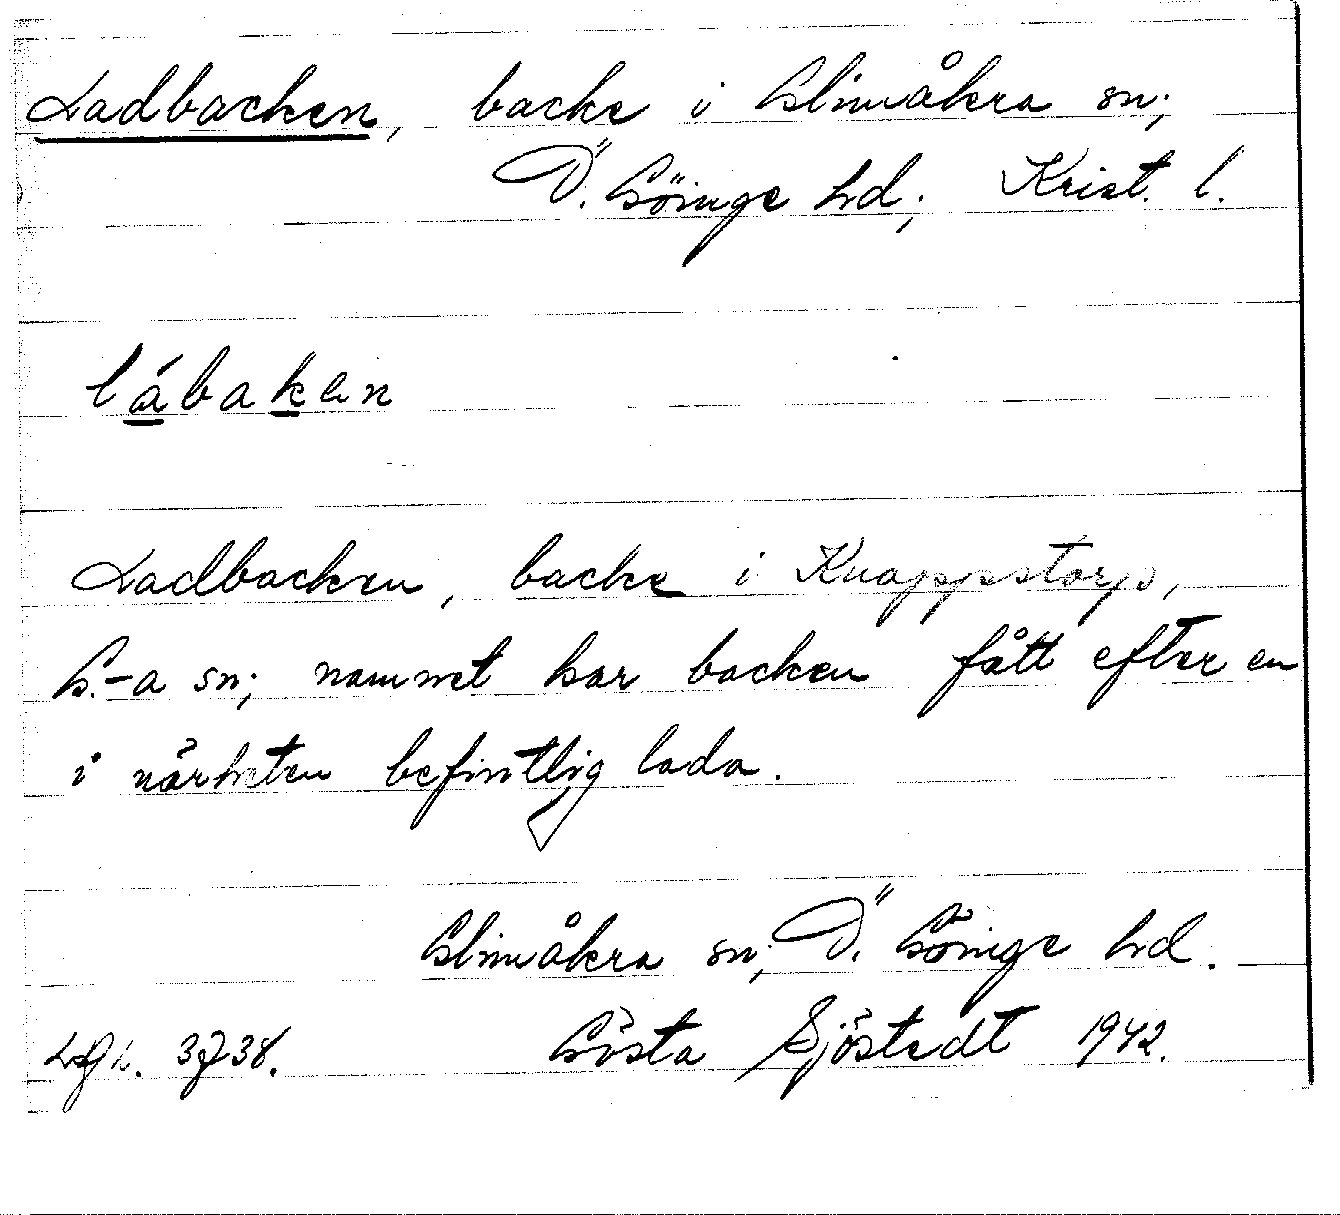 Ladbacken, backe i Glimåkra sn;
Ö. Göinge hd; Krist. l.
lábaken
Ladbacken, backe i Knappstorp,
G.-a sn; namnet har backen fått efter en
i närheten befintlig lada.
Glimåkra sn, Ö. Göinge hd.
3738. Gösta Sjöstedt 1942.